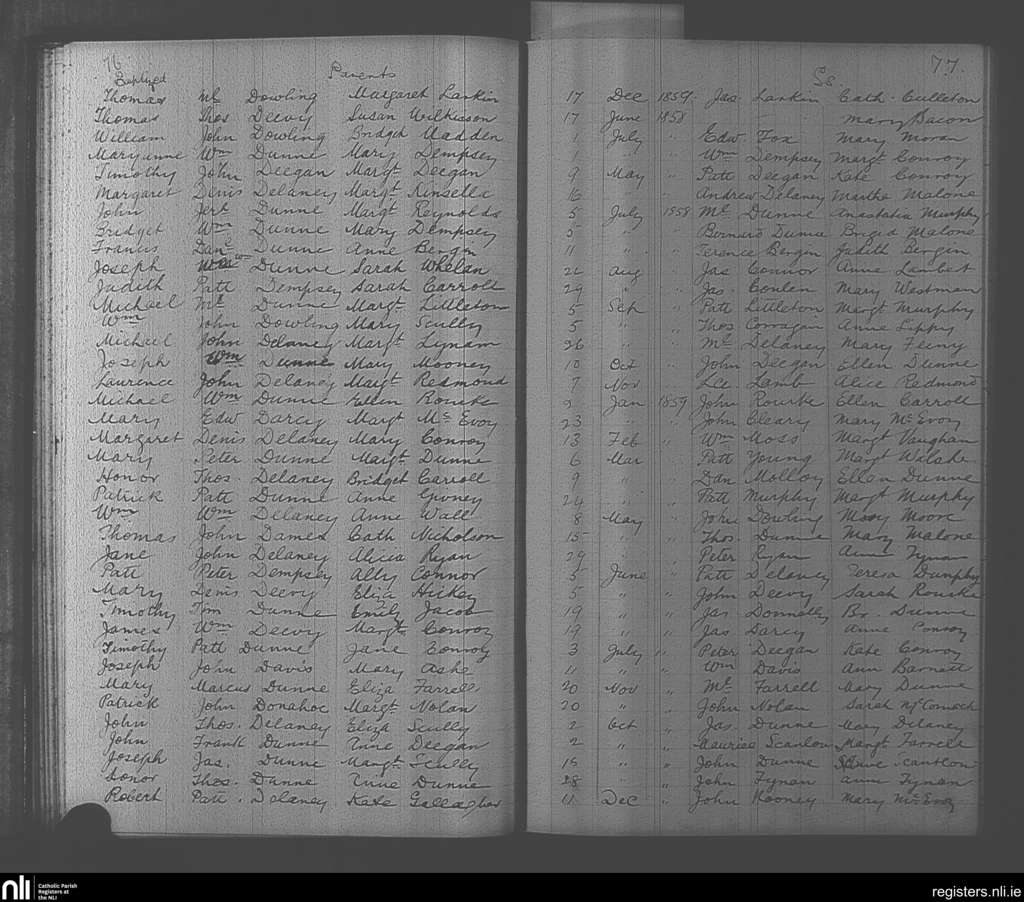 76
77
Baptized Parents Ss
Thomas Ml Dowling Margaret Larkin 17 Dec 1859 Jas. Larkin Cath. Culleton
Thomas Thos Deevy Susan Wilkisson 17 June 1858 Mary Bacon
William John Dowling Bridget Madden 1 July Edw. Fox Mary Moran
Maryanne Wm Dunne Mary Dempsey 1 " " Wm Dempsey Margt Conroy
Timothy John Deegan Margt Deegan 9 May " Patt Deegan Kate Conroy
Margaret Denis Delaney Margt Kinsella 16 Andrew Delaney Martha Malone
John Jerh Dunne Margt Reynolds 5 July 1858 Ml Dunne Anastatia Murphy
Bridget Wm Dunne Mary Dempsey 5 " " Bernard Dunne Brigid Malone
Francis Danl Dunne Anne Bergin 11 " " Terence Bergin Judith Bergin
Joseph Dunne Sarah Whelan 22 Aug " Jas Connor Anne Lambert
Judith Patt Dempsey Sarah Carroll 29 " " Jas. Conlan Mary Westman
Michael Ml Dunne Margt Littleton 5 Sep " Patt Littleton Margt Murphy
Wm John Dowling Mary Scully 5 " " Thos Corragan Anne Lippy
Michael John Delaney Margt Lynam 26 " " Ml Delaney Mary Feeny
Joseph Wm Dunne Mary Mooney 10 Oct " John Deegan Ellen Dunne
Laurence John Delaney Margt Redmond 7 Nov " Lce. Lamb Alice Redmond
Michael Wm Dunne Ellen Rourke 2 Jan 1859 John Rourke Ellen Carroll
Mary Edw Darcy Margt McEvoy 23 " " John Cleary Mary McEvoy
Margaret Denis Delaney Mary Conroy 13 Feb " Wm Moss Margt Vaughan
Mary Peter Dunne Margt Dunne 6 Mar " Patt Young Margt Walshe
Honor Thos. Delaney Bridget Carroll 9 " " Dan Molloy Ellen Dunne
Patrick Patt Dunne Anne 24 " " Patt Murphy Margt Murphy
Wm Wm Delaney Anne Wall 8 May " John Dowling Mary Moore
Thomas John Dames Cath Nicholson 15 " " Thos. Dunne Mary Malone
Jane John Delaney Alicia Ryan 29 " " Peter Ryan Anne Tynan
Patt Peter Dempsey Ally Connor 5 June " Patt Delaney Teresa Dunphy
Mary Denis Deevy Eliza Hickey 5 " " John Deevy Sarah Rourke
Timothy Tim Dunne Emily Jacob 19 " " Jas. Donnelly Br. Dunne
James Wm Deevy Margt Conroy 19 " " Jas Darcy Anne Conroy
Timothy Patt Dunne Jane Conroy 3 July " Peter Deegan Kate Conroy
Joseph John Davis Mary Ashe 11 " " Wm Davis Ann Barnatt
Mary Marcus Dunne Eliza Farrell 20 Nov " Ml Farrell Mary Dunne
Patrick John Donahoe Margt Nolan 20 " " John Nolan Sarah McComack
John Thos. Delaney Eliza Scully 2 Oct " Jas. Dunne Mary Delaney
John Frank Dunne Anne Deegan 2 " " Maurice Scanlon Margt Farrell
Joseph Jas. Dunne Margt Scully 15 " " John Dunne Scanlon
Honor Thos. Dunne Anne Dunne 28 " " John Tynan Anne Tynan
Robert Patt. Delaney Kate Gallagher 11 Dec " John Rooney Mary McEvoy
nli Catholic Parish Registers at the NLI
registers.nli.ie